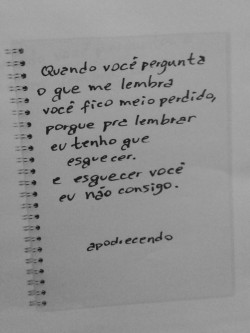 Quando você pergunta
o que me lembra
você fico meio perdido,
porque pra lembrar
eu tenho que
esquecer.
e esquecer você
eu não consigo.
apodrecendo